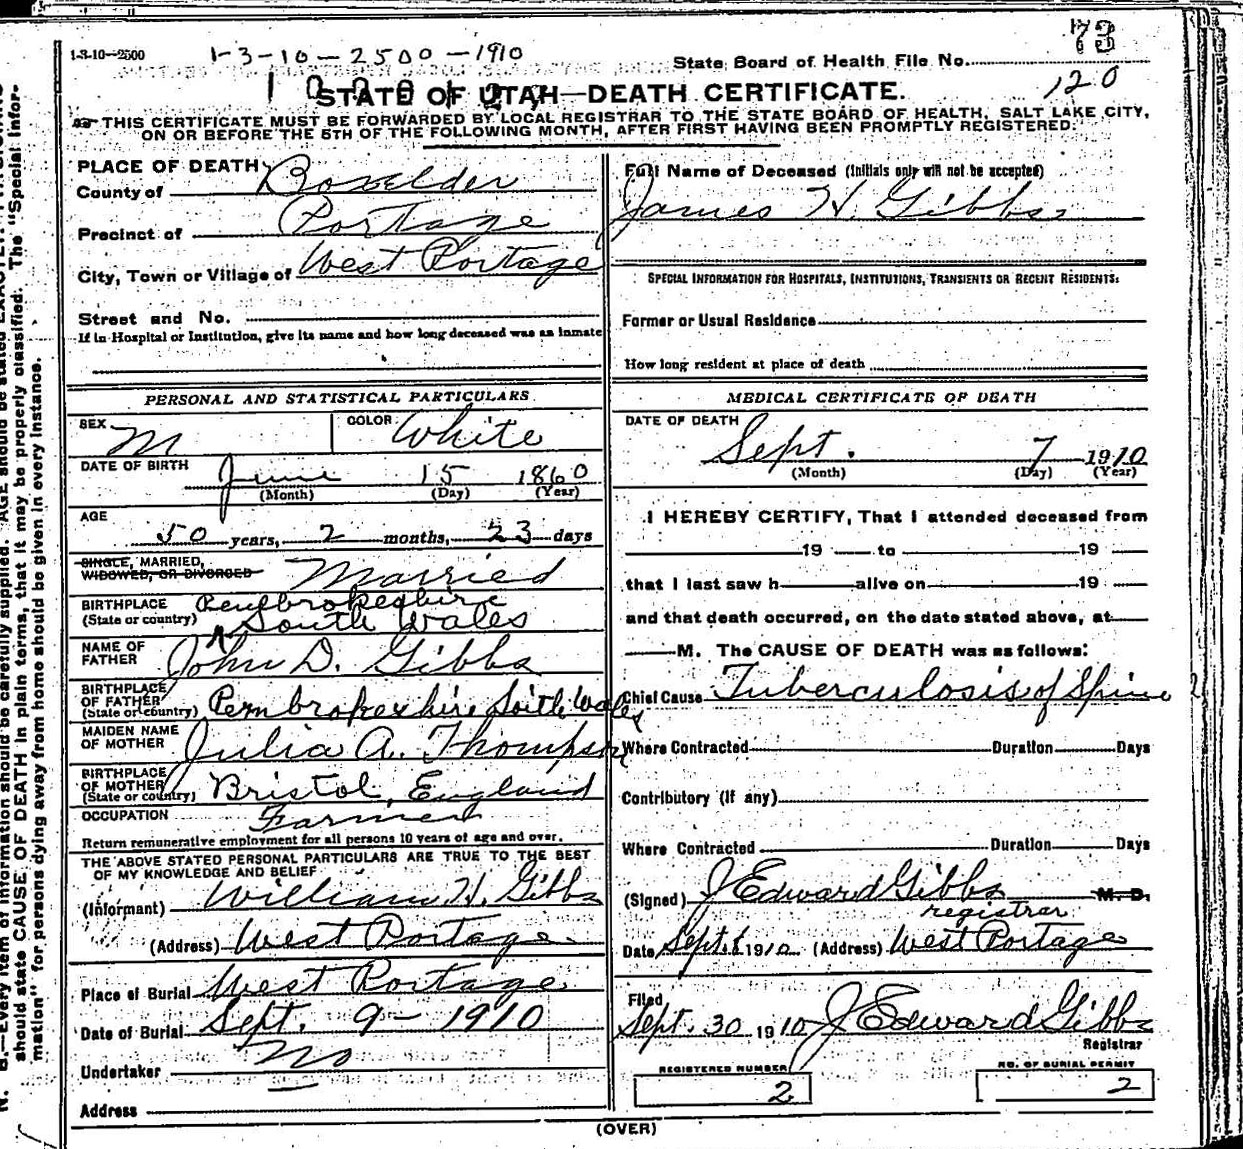 73
1-3-10--2500 1-3-10-2500-1910
State Board of Health File No. 120
STATE OF UTAH—DEATH CERTIFICATE.
THIS CERTIFICATE MUST BE FORWARDED BY LOCAL REGISTRAR TO THE STATE BOARD OF HEALTH, SALT LAKE CITY,
ON OR BEFORE THE 5TH OF THE FOLLOWING MONTH, AFTER FIRST HAVING BEEN PROMPTLY REGISTERED.
PLACE OF DEATH
County of Boxelder
Precinct of Portage
City, Town or Village of West Portage
Street and No.
If in Hospital or Institution, give its name and how long deceased was an inmate
PERSONAL AND STATISTICAL PARTICULARS
SEX M COLOR White
DATE OF BIRTH June 15 1860
(Month) (Day) (Year)
AGE
50 years, 2 months, 23 days
SINGLE, MARRIED,
WIDOWED, OR DIVORCED Married
BIRTHPLACE Pembrokeshire
(State or country) South Wales
NAME OF
FATHER John D. Gibbs
BIRTHPLACE
OF FATHER
(State or country) Pembrokeshire South Wales
MAIDEN NAME
OF MOTHER Julia A. Thompson
BIRTHPLACE
OF MOTHER
(State or country) Bristol, England
OCCUPATION Farmer
Return remunerative employment for all persons 10 years of age and over.
THE ABOVE STATED PERSONAL PARTICULARS ARE TRUE TO THE BEST
OF MY KNOWLEDGE AND BELIEF
(Informant) William H. Gibbs
(Address) West Portage
Place of Burial West Portage
Date of Burial Sept. 9-1910
Undertaker No
Address
Full Name of Deceased (Initials only will not be accepted)
James H. Gibbs
SPECIAL INFORMATION FOR HOSPITALS, INSTITUTIONS, TRANSIENTS OR RECENT RESIDENTS:
Former or Usual Residence
How long resident at place of death
MEDICAL CERTIFICATE OF DEATH
DATE OF DEATH
Sept. 7 1910
(Month) (Day) (Year)
I HEREBY CERTIFY, That I attended deceased from
19 to 19
that I last saw h alive on 19
and that death occurred, on the date stated above, at
M. The CAUSE OF DEATH was as follows:
Chief Cause Tuberculosis of Spine
Where Contracted Duration Days
Contributory (if any)
Where Contracted Duration Days
(Signed) J Edward Gibbs M. D.
registrar
Date Sept. 1910 (Address) West Portage
Filed
Sept. 30 1910 J Edward Gibbs
Registrar
REGISTERED NUMBER 2
NO. OF BURIAL PERMIT 2
(OVER)
N. B.—Every item of information should be carefully supplied. AGE should be stated
should state CAUSE OF DEATH in plain terms, that it may be properly classified. The "Special Infor-
mation" for persons dying away from home should be given in every instance.